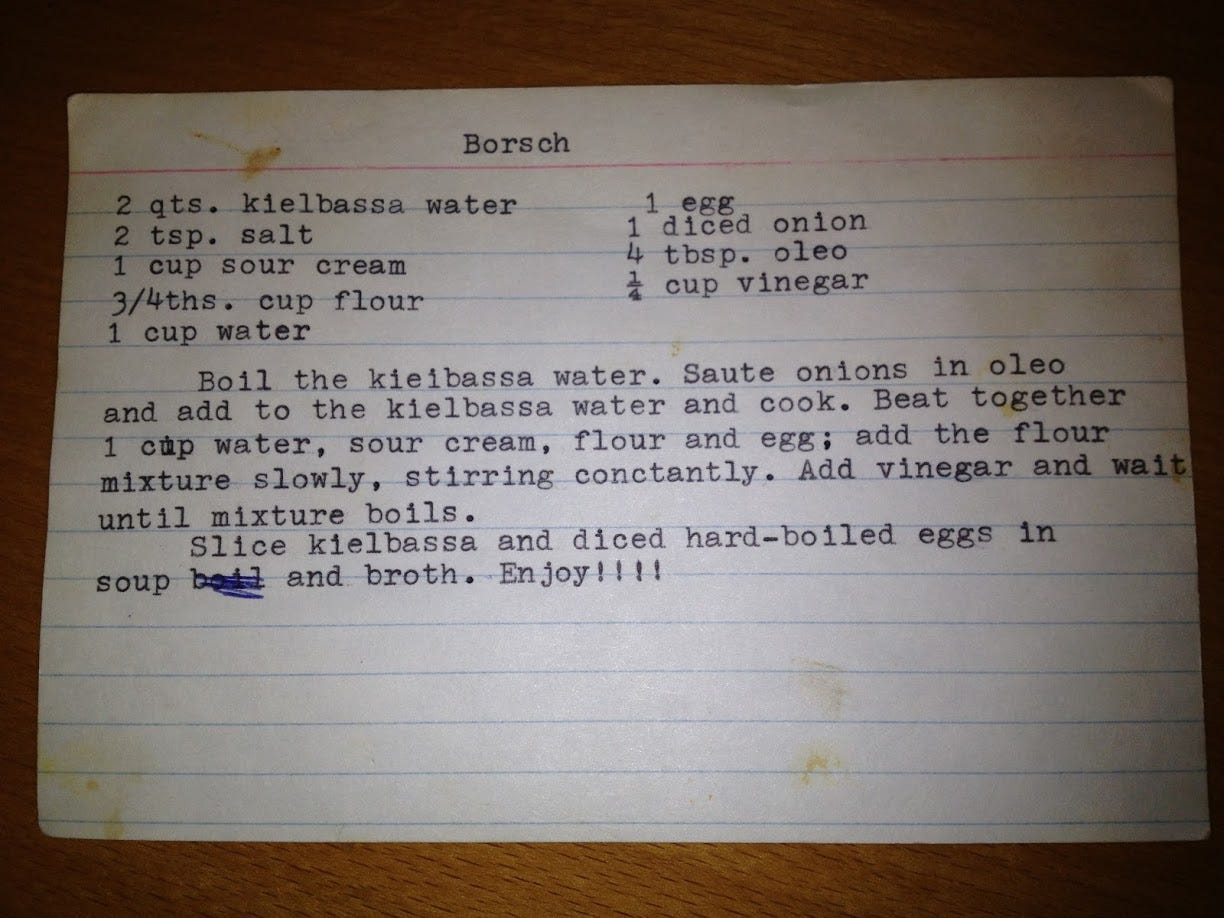 Borsch
2 qts. kielbassa water
2 tsp. salt
1 cup sour cream
3/4ths. cup flour
1 cup water
1 egg
1 diced onion
4 tbsp. oleo
¼ cup vinegar
Boil the kieibassa water. Saute onions in oleo
and add to the kielbassa water and cook. Beat together
1 cup water, sour cream, flour and egg; add the flour
mixture slowly, stirring conctantly. Add vinegar and wait
until mixture boils.
Slice kielbassa and diced hard-boiled eggs in
soup boil and broth. Enjoy!!!!